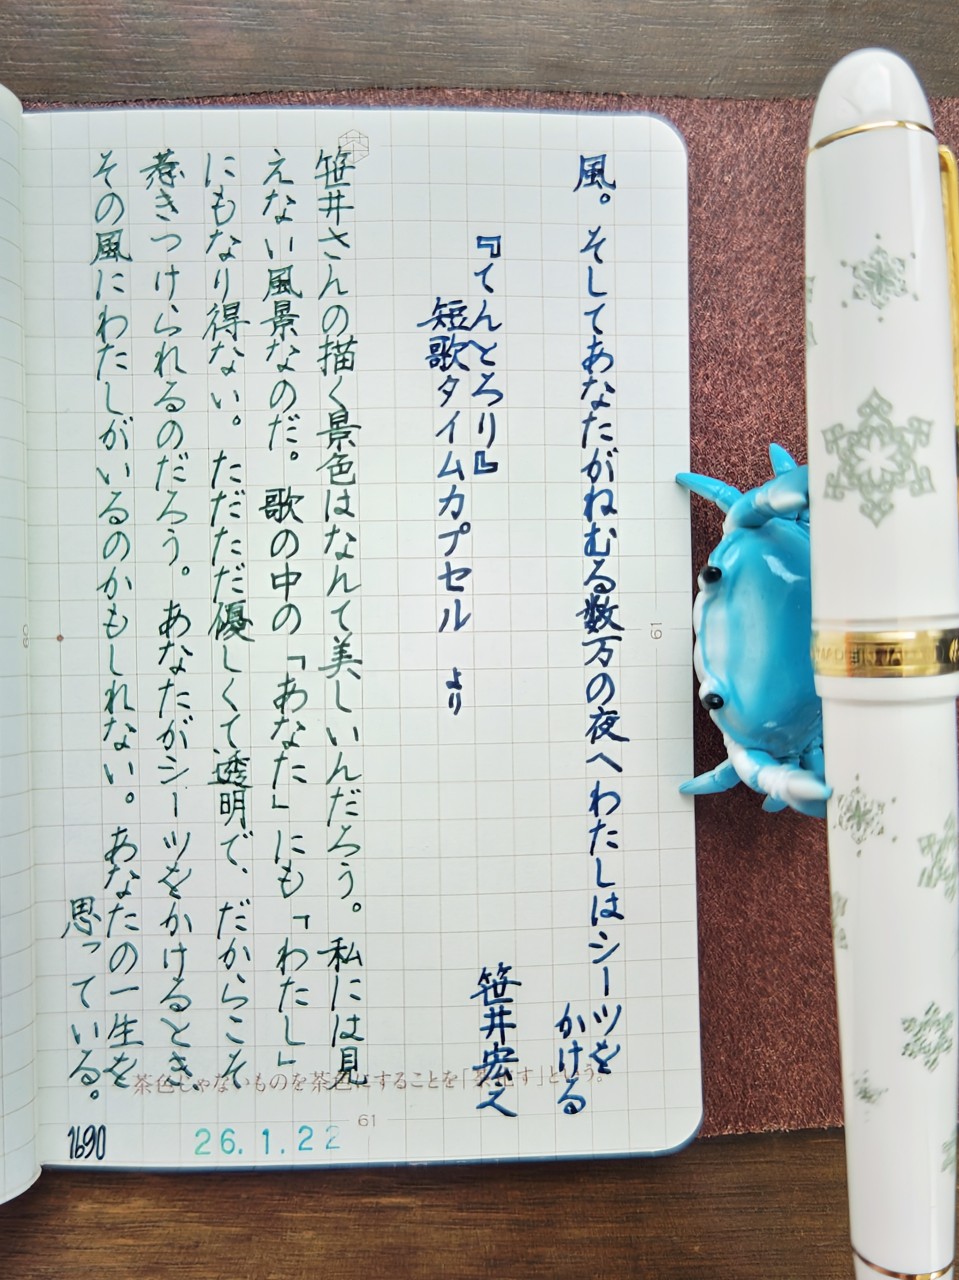 風。そしてあなたがねむる数万の夜へわたしはシーツを
かける
『てんとろり』
笹井宏之
短歌タイムカプセル より
笹井さんの描く景色はなんて美しいんだろう。私には見
えない風景なのだ。歌の中の「あなた」にも「わたし」
にもなり得ない。ただただ優しくて透明で、だからこそ
惹きつけられるのだろう。あなたがシーツをかけるとき、
その風にわたしがいるのかもしれない。あなたの一生を
思っている。
茶色じゃないものを茶色にすることを
という。
61
61
26.1.22
1690